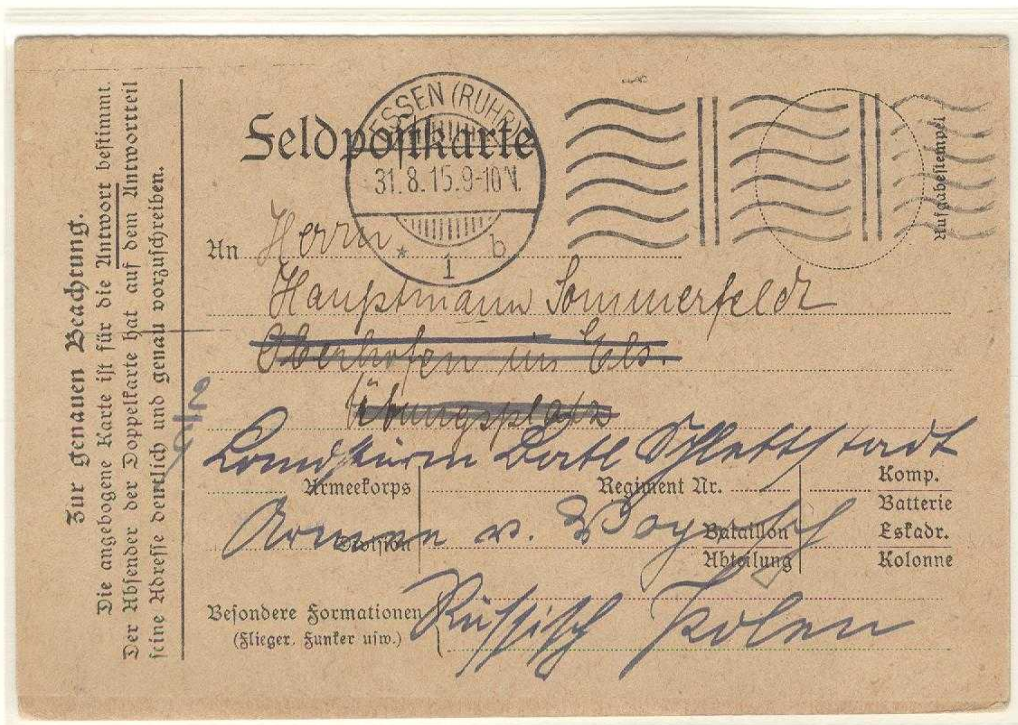 Zur genauen Beachtung.
Die angebogene Karte ist für die Antwort bestimmt.
Der Absender der Doppelkarte hat auf dem Antwortteil
seine Adresse deutlich und genau vorzuschreiben.
Feldpostkarte
ESSEN (RUHR)
31.8.15.9-10 N.
* 1 b
Aufgabestempel
An Herrn
Hauptmann Sommerfeldt
Oberhofen im Els.
Übungsplatz
Landsturm Batl Schlettstadt
Armeekorps
Regiment Nr.
Komp.
Batterie
Armee v. Woyrsch
Division
Bataillon
Eskadr.
Abteilung
Kolonne
Besondere Formationen
(Flieger, Funker usw.)
Russisch Polen